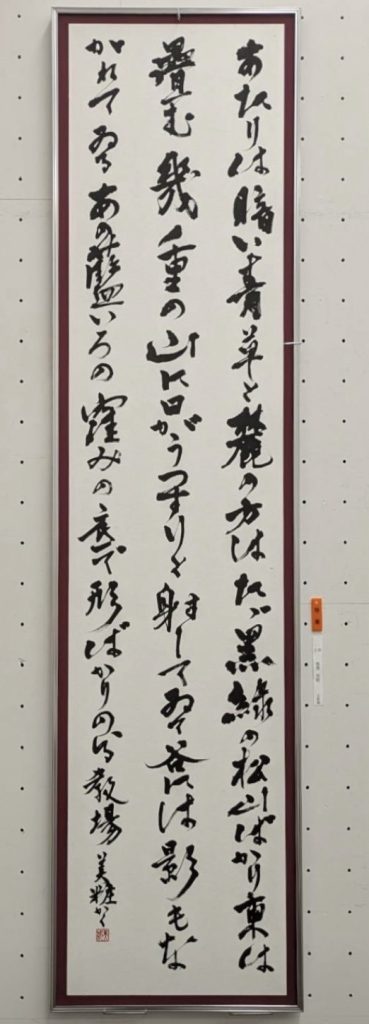 あたりは暗い青草と麓の方はたゞ黒緑の松山ばかり東は
疊む幾重の山に日がうつすりと射してゐて谷には影もな
がれてゐるあの藍いろの窪みの底で形ばかりの分教場
美粧かく